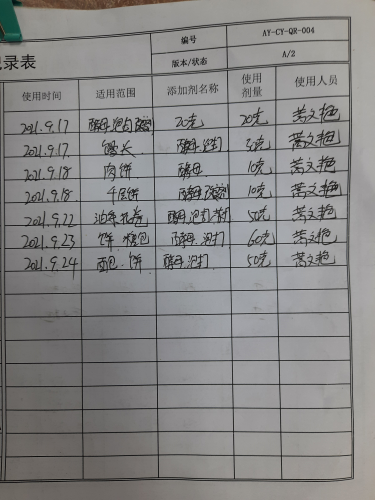 编号 AY-CY-QR-004
录表
版本/状态 A/2
使用时间 适用范围 添加剂名称 使用剂量 使用人员
2021.9.17 酵母 泡打 20克 20克 苦文艳
2021.9.17. 馒头 酵母 泡打 苦文艳
2021.9.18 肉饼 酵母 10克 苦文艳
2021.9.18. 千层饼 酵母 10克 苦文艳
2021.9.22 油条 花卷 酵母 泡打 50克 苦文艳
2021.9.23 饼 糖包 酵母 泡打 60克 苦文艳
2021.9.24 面包 饼 酵母 泡打 50克 苦文艳